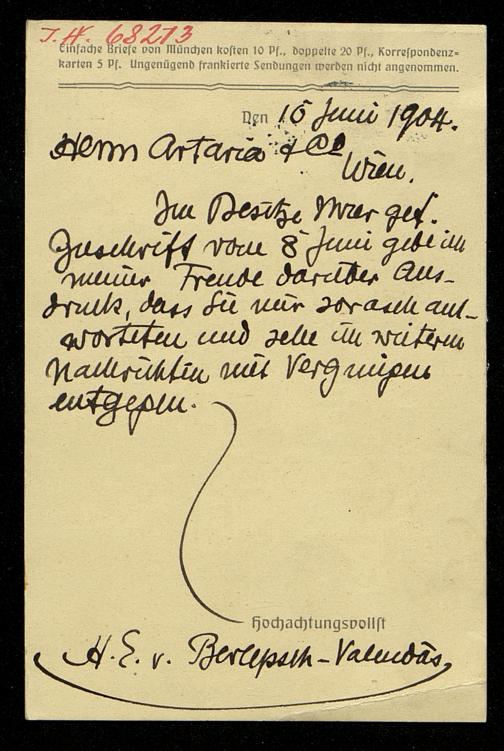 J. N. 68213
Einfache Briefe von München kosten 10 Pf., doppelte 20 Pf., Korrespondenz=
karten 5 Pf. Ungenügend frankierte Sendungen werden nicht angenommen.
Den 10 Juni 1904.
Herrn Artaria & Co
Wien.
Im Besitze Ihrer gef.
Zuschrift vom 8 Juni gebe ich
meiner Freude darüber Aus-
druck, dass Sie mir so rasch ant-
worteten und sehe ihren weiteren
Nachrichten mit Vergnügen
entgegen.
Hochachtungsvollst
H. E. v. Berlepsch-Valendas,